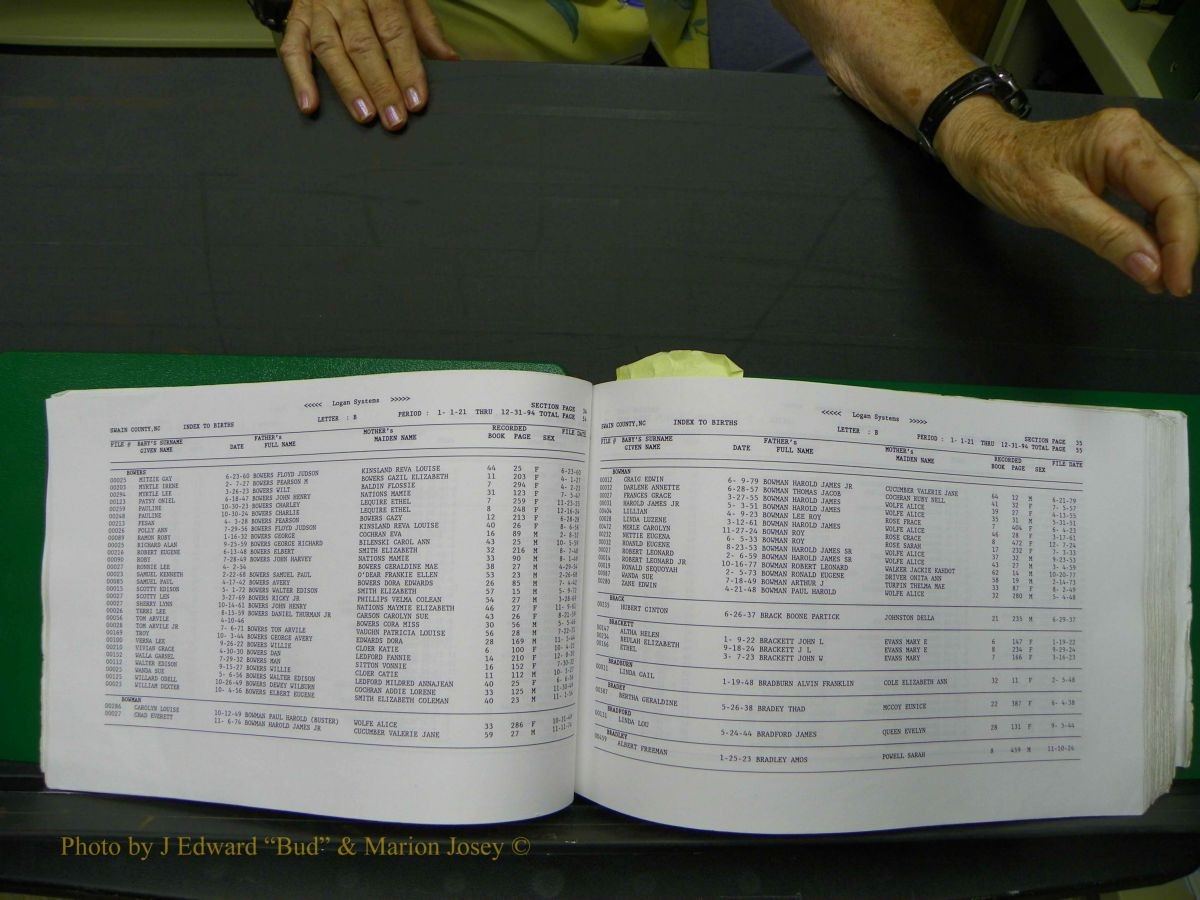 <<<<< Logan Systems >>>>>
SECTION PAGE 34
LETTER : B PERIOD : 1- 1-21 THRU 12-31-94 TOTAL PAGE 54
SWAIN COUNTY,NC INDEX TO BIRTHS
FATHER's MOTHER's RECORDED
FILE # BABY'S SURNAME GIVEN NAME DATE FULL NAME MAIDEN NAME BOOK PAGE SEX FILE DATE
BOWERS
00025 MITZIE GAY 6-23-60 BOWERS FLOYD JUDSON KINSLAND REVA LOUISE 44 25 F 6-23-60
00203 MYRTLE IRENE 2- 7-27 BOWERS PEARSON M BOWERS GAZIL ELIZABETH 11 203 F 4- 1-27
00294 MYRTLE LEE 3-26-23 BOWERS WILT BALDIN FLOSSIE 7 294 F
00123 PATSY ONIEL 6-18-47 BOWERS JOHN HENRY NATIONS MAMIE 31 123 F 7- 5-47
00259 PAULINE 10-30-23 BOWERS CHARLEY LEQUIRE ETHEL 7 259 F
00248 PAULINE 10-30-24 BOWERS CHARLIE LEQUIRE ETHEL 8 248 F
00213 PESAN 4- 3-28 BOWERS PEARSON BOWERS GAZY 12 213 F
00026 POLLY ANN 7-29-56 BOWERS FLOYD JUDSON KINSLAND REVA LOUISE 40 26 F
00089 RAMON ROBY 1-16-32 BOWERS GEORGE COCHRAN EVA 16 89 M
00025 RICHARD ALAN 9-25-59 BOWERS GEORGE RICHARD BILENSKI CAROL ANN 43 25 M
00216 ROBERT EUGENE 6-13-48 BOWERS ELBERT SMITH ELIZABETH 32 216 M
00090 ROBY 7-28-49 BOWERS JOHN HARVEY NATIONS MAMIE 33 90 M
00027 RONNIE LEE 4- 2-54 BOWERS GERALDINE MAE 38 27 M
00023 SAMUEL KENNETH 2-22-68 BOWERS SAMUEL PAUL O'DEAR FRANKIE ELLEN 53 23 M 2-26-68
00085 SAMUEL PAUL 4-17-42 BOWERS AVERY BOWERS DORA EDWARDS 26 85 M
00015 SCOTTY EDISON 5- 1-72 BOWERS WALTER EDISON SMITH ELIZABETH 57 15 M
00027 SCOTTY LEN 3-27-69 BOWERS RICKY JR PHILLIPS VELMA COLEAN 54 27 M
00027 SHERRY LYNN 10-14-61 BOWERS JOHN HENRY NATIONS MAYMIE ELIZABETH 46 27 F
00026 TERRI LEE 8-15-59 BOWERS DANIEL THURMAN JR CARSON CAROLYN SUE 43 26 F
00056 TOM ARVILE 4-10-46 BOWERS CORA MISS 30 56 M
00028 TOM ARVILE JR 7- 6-71 BOWERS TON ARVILE VAUGHN PATRICIA LOUISE 56 28 M
00169 TROY 10- 3-44 BOWERS GEORGE AVERY EDWARDS DORA 28 169 M
00100 VERNA LEE 9-26-22 BOWERS WILLIE CLOER KATIE 6 100 F
00210 VIVIAN GRACE 4-30-30 BOWERS DAN LEDFORD FANNIE 14 210 F
00152 WALLA GARNEL 7-29-32 BOWERS MAN SITTON VONNIE 16 152 F
00112 WALTER EDISON 9-15-27 BOWERS WILLIE CLOER CATIE 11 112 M
00025 WANDA SUE 5- 6-56 BOWERS WALTER EDISON LEDFORD MILDRED ANNAJEAN 40 25 F
00125 WILLARD ODELL 10-26-49 BOWERS DEWEY WILBURN COCHRAN ADDIE LORENE 33 125 M
00023 WILLIAM DEXTER 10- 4-56 BOWERS ELBERT EUGENE SMITH ELIZABETH COLEMAN 40 23 M
BOWMAN
00286 CAROLYN LOUISE 10-12-49 BOWMAN PAUL HAROLD (BUSTER) WOLFE ALICE 33 286 F
00027 CHAD EVERETT 11- 6-74 BOWMAN HAROLD JAMES JR CUCUMBER VALERIE JANE 59 27 M
<<<<< Logan Systems >>>>>
SECTION PAGE 35
LETTER : B PERIOD : 1- 1-21 THRU 12-31-94 TOTAL PAGE 55
SWAIN COUNTY,NC INDEX TO BIRTHS
FATHER's MOTHER's RECORDED
FILE # BABY'S SURNAME GIVEN NAME DATE FULL NAME MAIDEN NAME BOOK PAGE SEX FILE DATE
BOWMAN
00012 CRAIG EDWIN 6- 9-79 BOWMAN HAROLD JAMES JR CUCUMBER VALERIE JANE 64 12 M 6-21-79
00032 DARLENE ANNETTE 6-28-57 BOWMAN THOMAS JACOB COCHRAN RUBY NELL 41 32 F 7- 5-57
00027 FRANCES GRACE 3-27-55 BOWMAN HAROLD JAMES WOLFE ALICE 39 27 F 4-13-55
00031 HAROLD JAMES JR 5- 3-51 BOWMAN HAROLD JAMES WOLFE ALICE 35 31 M 5-31-51
00404 LILLIAN 4- 9-23 BOWMAN LEE ROY ROSE FRACE 7 404 F 6- 4-23
00028 LINDA LUZENE 3-12-61 BOWMAN HAROLD JAMES WOLFE ALICE 46 28 F 3-17-61
00472 MERLE CAROLYN 11-27-24 BOWMAN ROY ROSE GRACE 8 472 F 12- 7-24
00232 NETTIE EUGENA 6- 5-33 BOWMAN ROY ROSE SARAH 17 232 F 7- 3-33
00032 ROANLD EUGENE 8-23-53 BOWMAN HAROLD JAMES SR WOLFE ALICE 37 32 M 9-23-53
00027 ROBERT LEONARD 2- 6-59 BOWMAN HAROLD JAMES SR WOLFE ALICE 43 27 M 3- 4-59
00014 ROBERT LEONARD JR 10-16-77 BOWMAN ROBERT LEONARD WALKER JACKIE KAHDOT 62 14 M 10-20-77
00019 RONALD SEQUOYAH 2- 5-73 BOWMAN RONALD EUGENE DRIVER ONITA ANN 58 19 M 2-14-73
00087 WANDA SUE 7-18-49 BOWMAN ARTHUR J TURPIN THELMA MAE 33 87 F 8- 2-49
00280 ZANE EDWIN 4-21-48 BOWMAN PAUL HAROLD WOLFE ALICE 32 280 M 5- 4-48
BRACK
00235 HUBERT CINTON 6-26-37 BRACK BOONE PARTICK JOHNSTON DELLA 21 235 M 6-29-37
BRACKETT
00147 ALTHA HELEN 1- 9-22 BRACKETT JOHN L EVANS MARY E 6 147 F 1-19-22
00234 BEULAH ELIZABETH 9-18-24 BRACKETT J L EVANS MARY E 8 234 F 9-29-24
00166 ETHEL 3- 7-23 BRACKETT JOHN W EVANS MARY 7 166 F 3-16-23
BRADBURN
00011 LINDA GAIL 1-19-48 BRADBURN ALVIN FRANKLIN COLE ELIZABETH ANN 32 11 F 2- 5-48
BRADEY
00387 BERTHA GERALDINE 5-26-38 BRADEY THAD MCCOY EUNICE 22 387 F 6- 4-38
BRADFORD
00131 LINDA LOU 5-24-44 BRADFORD JAMES QUEEN EVELYN 28 131 F 9- 5-44
BRADLEY
00459 ALBERT FREEMAN 1-25-23 BRADLEY AMOS POWELL SARAH 8 459 M 11-10-24
Photo by J Edward “Bud” & Marion Josey ©